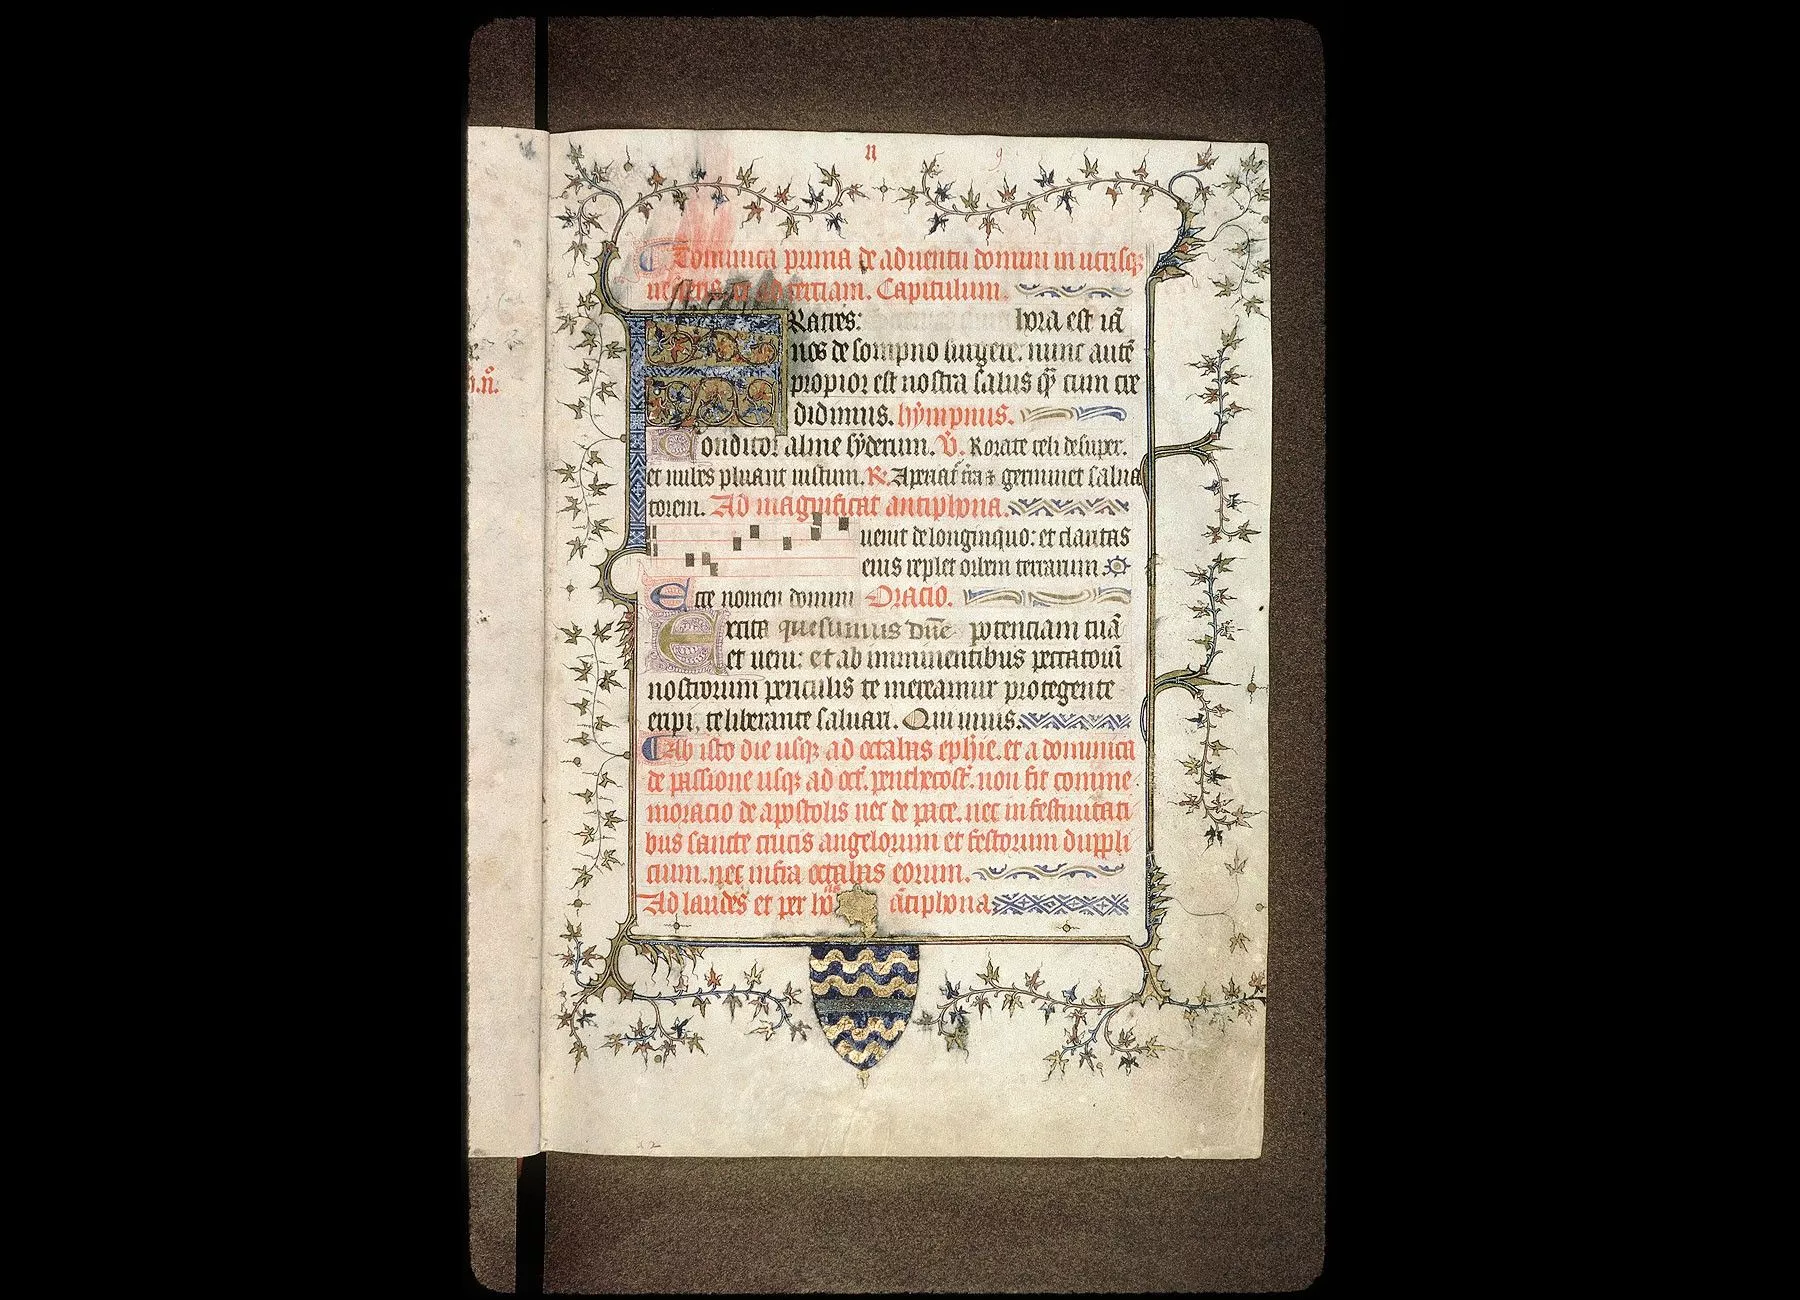 n
Dominica prima de aduentu domini in utrisq;
uesperis et ad terciam. Capitulum.
Ratres: hora est iā
nos de sompno surgere. nunc autē
propior est nostra salus qͣ cum cre
didimus. hympnus.
Conditor alme syderum. V̄. Rorate celi desuper.
et nubes pluant iustum. R̄. Aperiat̄ t̄ra ⁊ germinet salua
torem. Ad magnificat antiphona.
uenit de longinquo: et claritas
eius replet orbem terrarum
Ecce nomen domini Oracio.
Excita quesumus dn̄e potenciam tuā
et ueni: et ab imminentibus peccatorū
nostrorum periculis te mereamur protegente
eripi, te liberante saluari. Qui uiuis.
Ab isto die usq; ad octabas ephīe. et a dominica
de passione usq; ad oct̄. penthecost̄. non fit comme
moracio de apostolis nec de pace. nec in festiuitati
bus sancte crucis angelorum et festorum duppli
cium. nec infra octabas eorum.
Ad laudes et per ho āntiphona.
n̄.